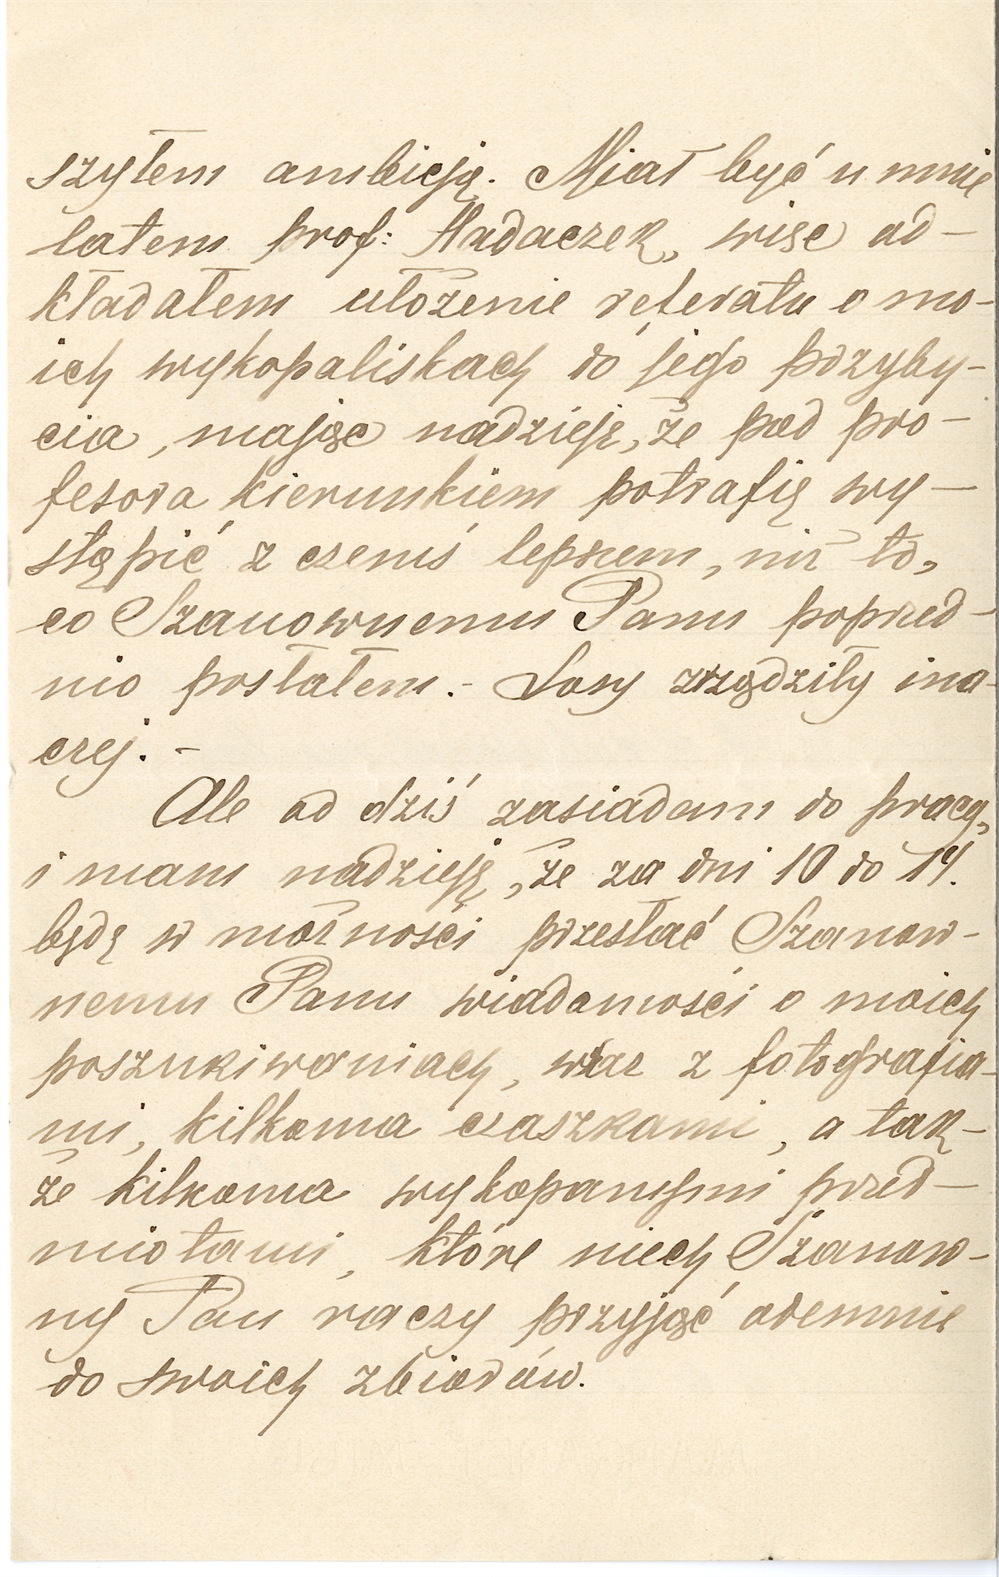 szyłem ambicję. Miał być u mnie
latem prof: Hadaczek, więc od-
kładałem ułożenie referatu o mo-
ich wykopaliskach do jego przyby-
cia, mając nadzieję, że pod pro-
fesora kierunkiem potrafię wy-
stąpić z czemś lepszem, niż to,
co Szanownemu Panu poprzed-
nio posłałem. - Losy zrządziły ina-
czej. -
Ale od dziś zasiadam do pracy,
i mam nadzieję, że za dni 10 do 14.
będę w możności przesłać Szanow-
nemu Panu wiadomości o moich
poszukiwaniach, wraz z fotografia-
mi, kilkoma czaszkami, a tak-
że kilkoma wykopanymi przed-
miotami, które niech Szanow-
ny Pan raczy przyjąć odemnie
do swoich zbiorów.